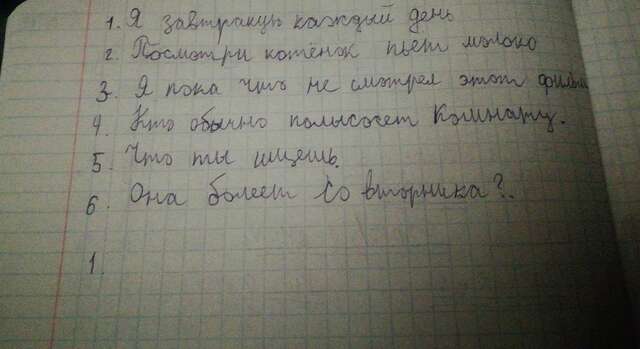 1. Я завтракую каждый день
2. Посмотри котёнок пьет молоко
3. Я пока что не смотрел этот фильм
4. Кто обычно полысосет комнату.
5. Что ты ищешь.
6. Она болеет со вторника?.
1.